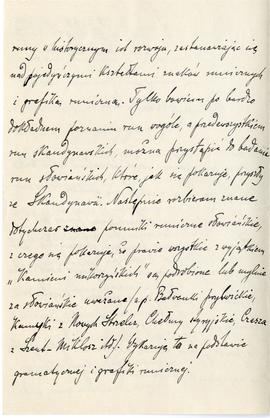 runy w historycznym ich rozwoju, zastanawiając się
nad pojedyńczymi kształtami znaków runicznych
i grafiką runiczną. Tylko bowiem po bardzo
dokładnem poznaniu run wogóle, a przedewszystkiem
run skandynawskich, można przystąpić do badania
run słowiańskich, które, jak się pokazuje, przyszły
ze Skandynawii. Następnie rozbieram znane
dotychczas pomniki runiczne słowiańskie,
z czego się pokazuje, że prawie wszystkie z wyjątkiem
"Kamieni mikorzyńskich" są podrobione lub mylnie
za słowiańskie uważane n.p. Bałwanki prylwickie,
Kamyki z Neu Strelitz, Hełmy styryjskie, Czasza
z Szent-Miklosz itd. Wykazuję to na podstawie
gramatycznej i grafiki runicznej.